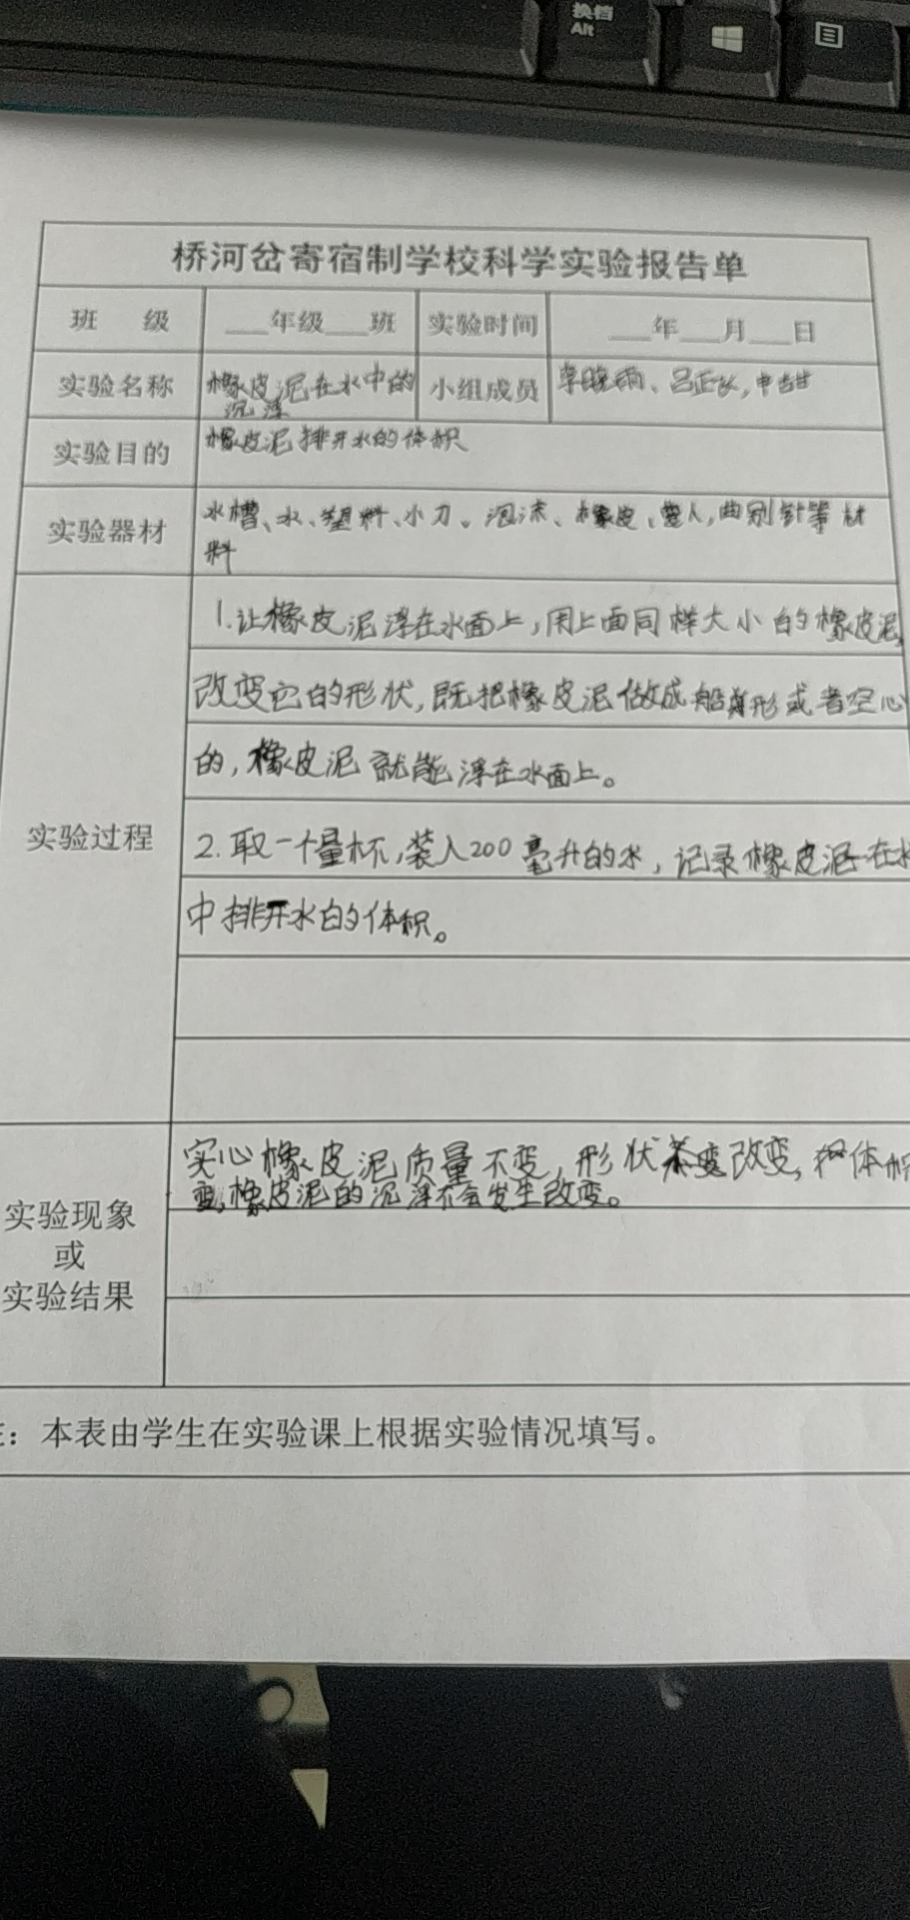 换档
Alt
桥河岔寄宿制学校科学实验报告单
班 级 ___年级___班 实验时间 ___年___月___日
实验名称 橡皮泥在水中的
沉浮
小组成员 李晓雨、吕正
实验目的 橡皮泥排开水的体积
实验器材 水槽、水、塑料、小刀、泡沫、橡皮、曲别针等材
料
实验过程
1.让橡皮泥浮在水面上,用上面同样大小的橡皮泥,
改变它的形状,既把橡皮泥做成船形或者空心
的,橡皮泥就能浮在水面上。
2.取一个量杯,装入200毫升的水,记录橡皮泥在水
中排开水的体积。
实验现象
或
实验结果
实心橡皮泥质量不变,形状改变,体积
变,橡皮泥的沉浮不会发生改变。
:本表由学生在实验课上根据实验情况填写。